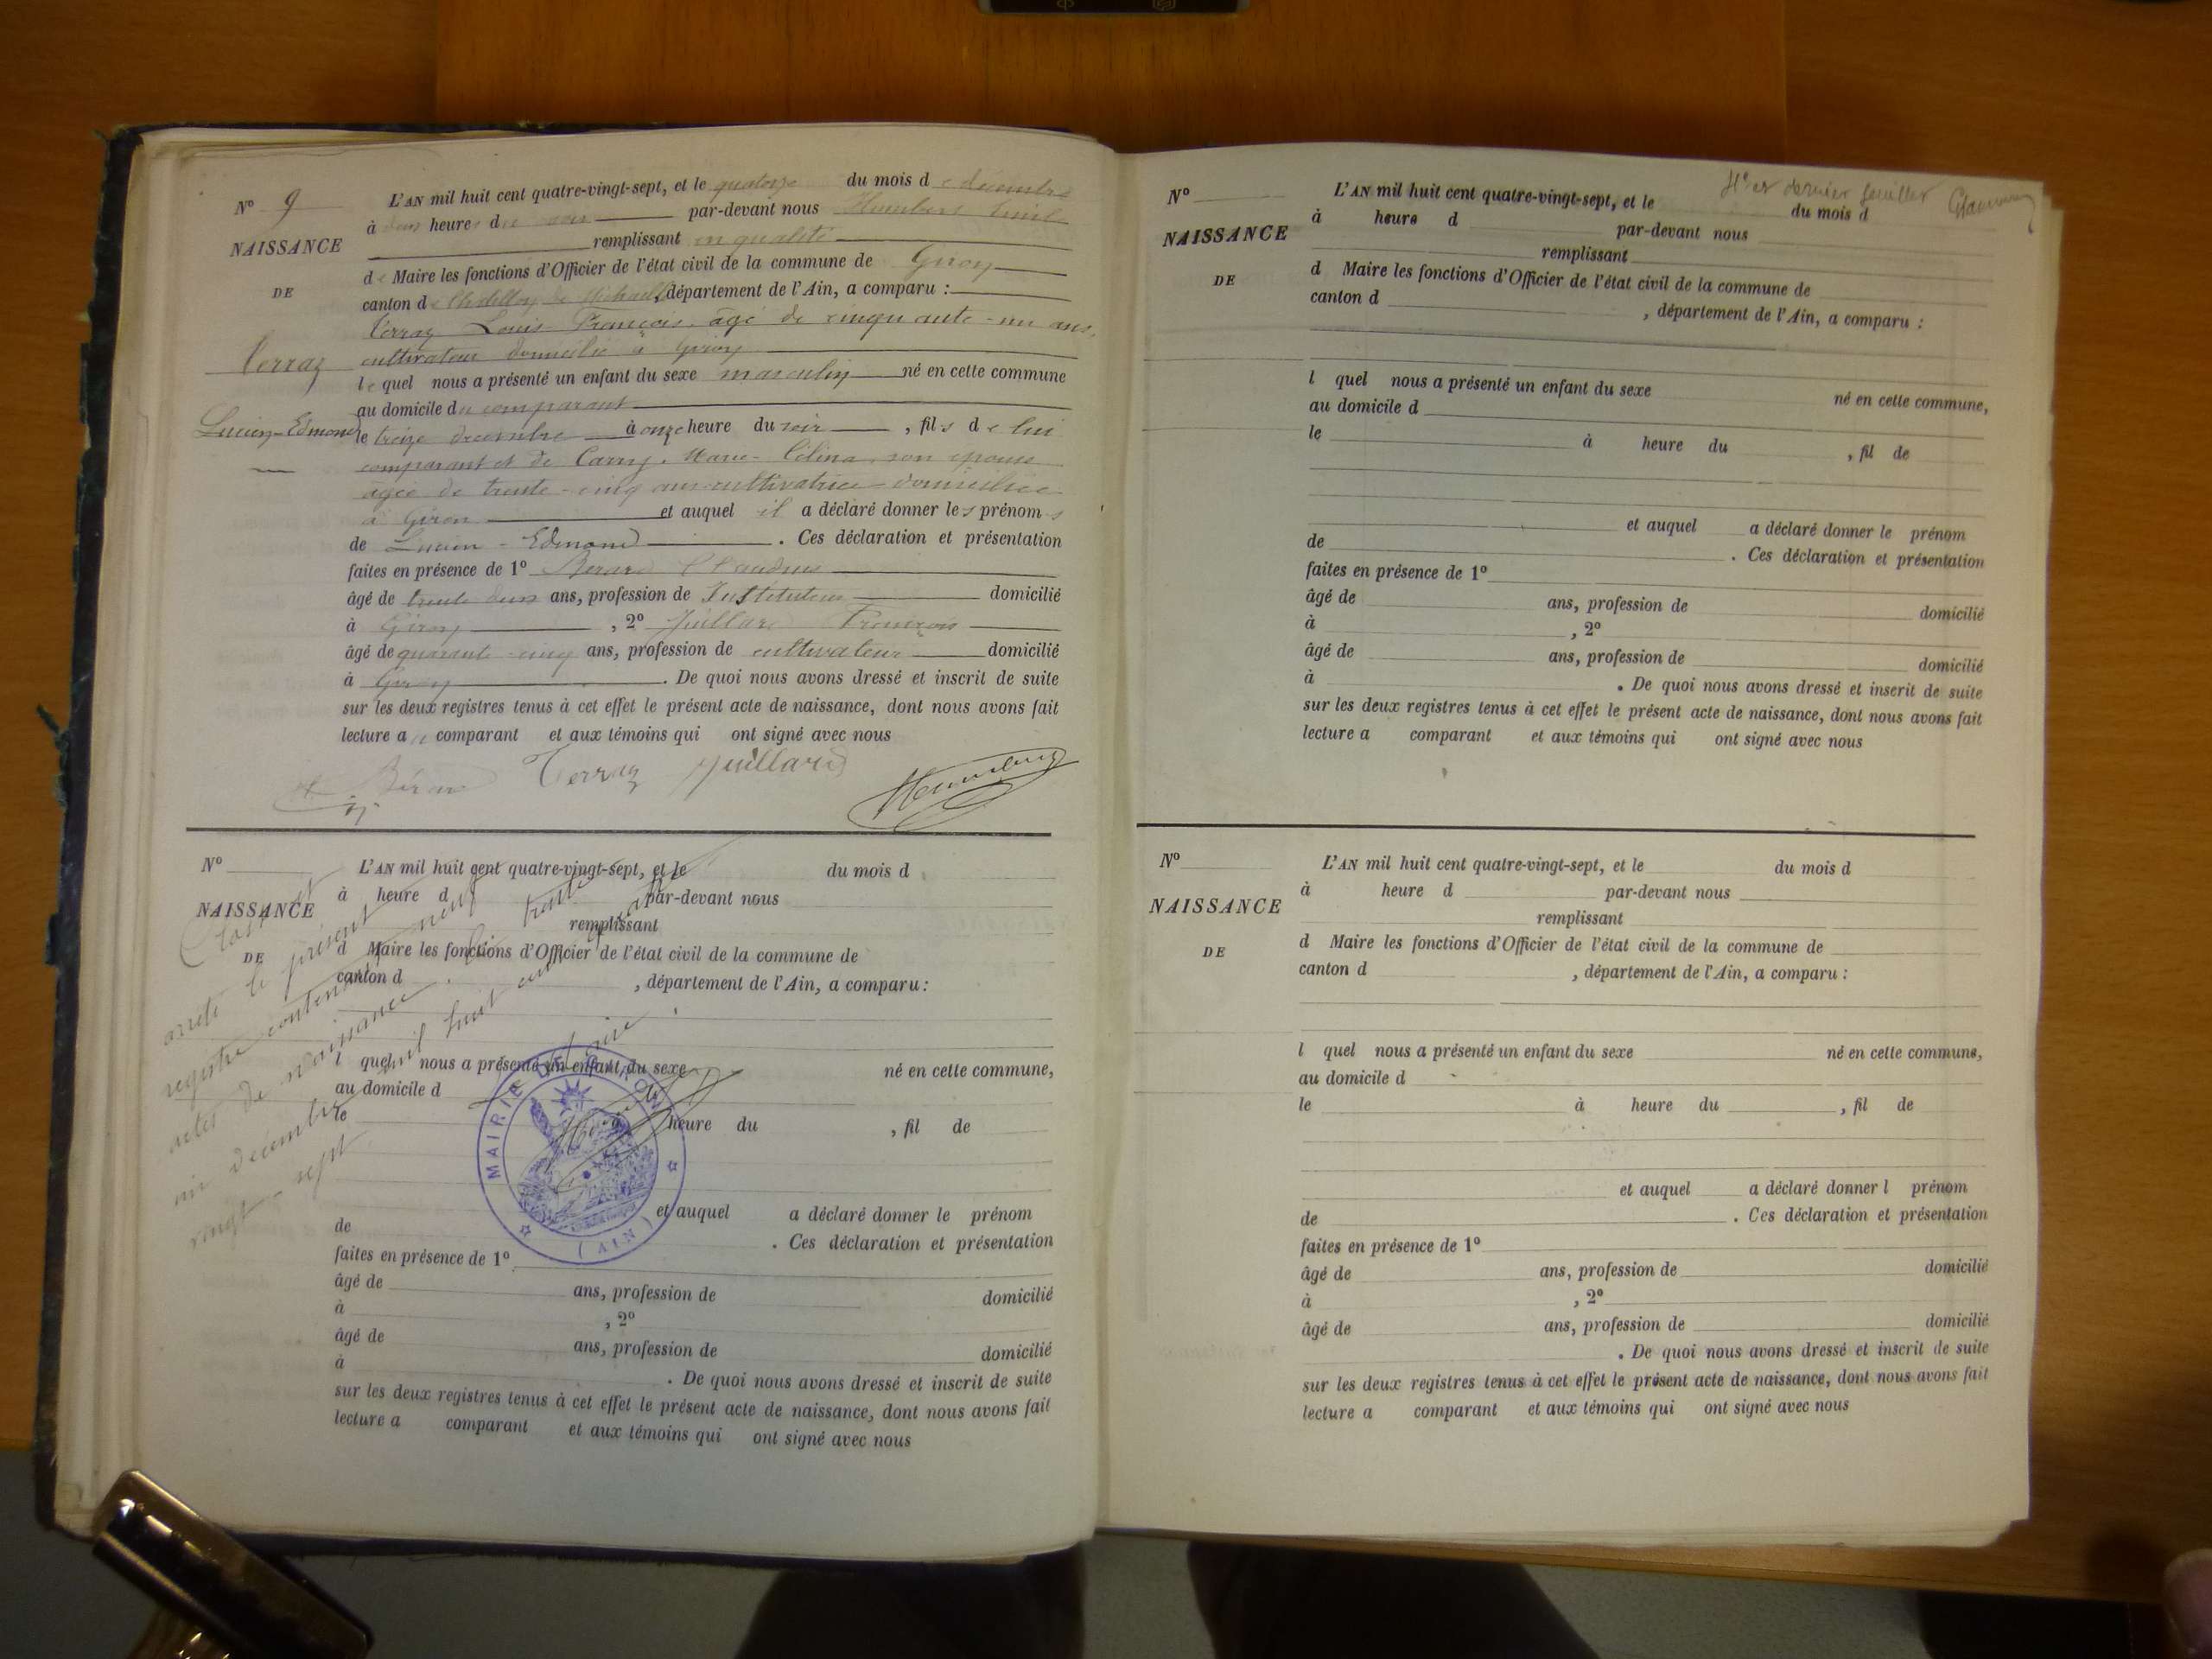 N° 9
NAISSANCE
DE
Terraz
Lucien-Edmond
L'AN mil huit cent quatre-vingt-sept, et le quatorze du mois de décembre
à deux heures du soir par-devant nous Humbert
remplissant en qualité
de Maire les fonctions d'Officier de l'état civil de la commune de Giron
canton de Châtillon de Michaille, département de l'Ain, a comparu :
Terraz Louis François, âgé de cinquante-un ans,
cultivateur domicilié à Giron
lequel nous a présenté un enfant du sexe masculin né en cette commune
au domicile du comparant
le treize décembre à onze heure du soir, fils de lui
comparant et de Marie-Célina, son épouse
âgée de trente-cinq ans cultivatrice domiciliée
à Giron et auquel il a déclaré donner les prénoms
de Lucien-Edmond. Ces déclaration et présentation
faites en présence de 1° Bérard Claudius
âgé de trente deux ans, profession de Instituteur domicilié
à Giron, 2° Juillard François
âgé de quarante-cinq ans, profession de cultivateur domicilié
à Giron. De quoi nous avons dressé et inscrit de suite
sur les deux registres tenus à cet effet le présent acte de naissance, dont nous avons fait
lecture au comparant et aux témoins qui ont signé avec nous
Bérard Terraz Juillard Humbert
N°
NAISSANCE
DE
L'AN mil huit cent quatre-vingt-sept, et le du mois d
à heure d par-devant nous
remplissant
d Maire les fonctions d'Officier de l'état civil de la commune de
canton d , département de l'Ain, a comparu :
l quel nous a présenté un enfant du sexe né en cette commune,
au domicile d
le à heure du , fil de
et auquel a déclaré donner le prénom
de . Ces déclaration et présentation
faites en présence de 1°
âgé de ans, profession de domicilié
à , 2°
âgé de ans, profession de domicilié
à . De quoi nous avons dressé et inscrit de suite
sur les deux registres tenus à cet effet le présent acte de naissance, dont nous avons fait
lecture a comparant et aux témoins qui ont signé avec nous
Clos et
arrêté le présent
registre contenant neuf
actes de naissance. Le trente
un décembre mil huit cent quatre
vingt-sept
Le Maire
MAIRIE DE GIRON
(AIN)
et dernier feuillet
N°
NAISSANCE
DE
L'AN mil huit cent quatre-vingt-sept, et le du mois d
à heure d par-devant nous
remplissant
d Maire les fonctions d'Officier de l'état civil de la commune de
canton d , département de l'Ain, a comparu :
l quel nous a présenté un enfant du sexe né en cette commune,
au domicile d
le à heure du , fil de
et auquel a déclaré donner le prénom
de . Ces déclaration et présentation
faites en présence de 1°
âgé de ans, profession de domicilié
à , 2°
âgé de ans, profession de domicilié
à . De quoi nous avons dressé et inscrit de suite
sur les deux registres tenus à cet effet le présent acte de naissance, dont nous avons fait
lecture a comparant et aux témoins qui ont signé avec nous
N°
NAISSANCE
DE
L'AN mil huit cent quatre-vingt-sept, et le du mois d
à heure d par-devant nous
remplissant
d Maire les fonctions d'Officier de l'état civil de la commune de
canton d , département de l'Ain, a comparu :
l quel nous a présenté un enfant du sexe né en cette commune,
au domicile d
le à heure du , fil de
et auquel a déclaré donner l prénom
de . Ces déclaration et présentation
faites en présence de 1°
âgé de ans, profession de domicilié
à , 2°
âgé de ans, profession de domicilié
. De quoi nous avons dressé et inscrit de suite
sur les deux registres tenus à cet effet le présent acte de naissance, dont nous avons fait
lecture a comparant et aux témoins qui ont signé avec nous